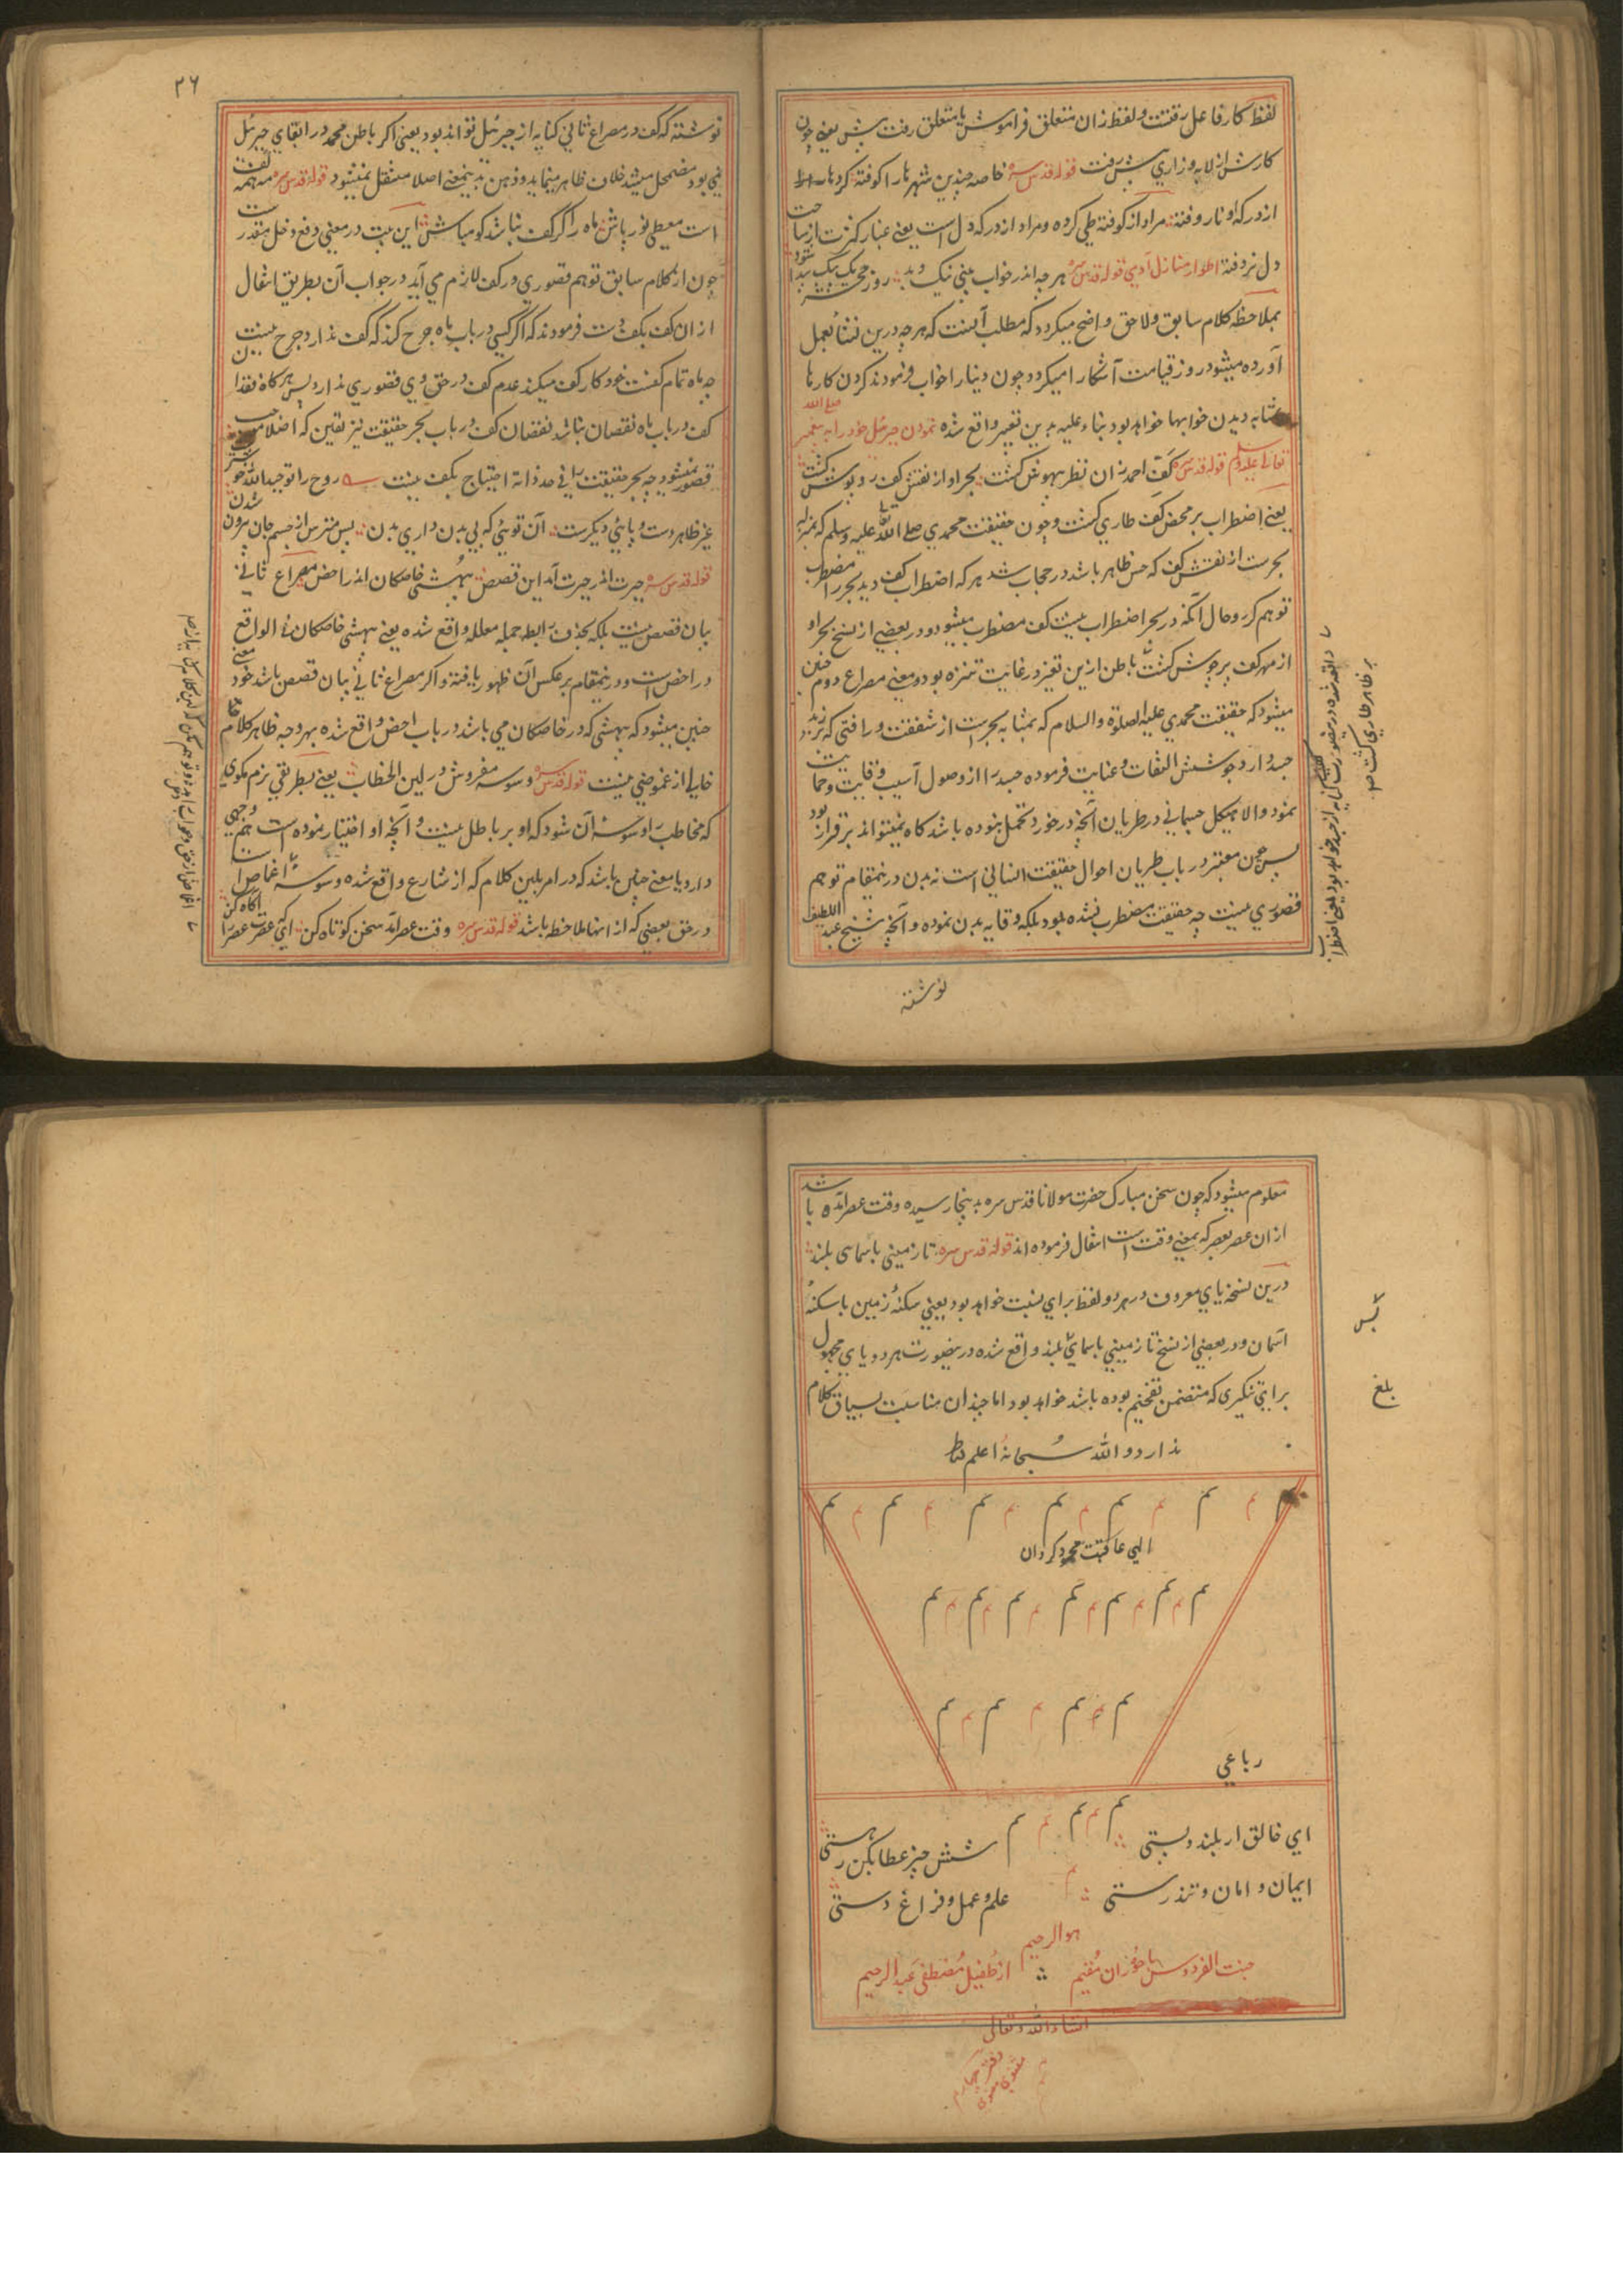 لفظ کار فاعل رفتست و لفظ زان متعلق فراموش یا متعلق رفت پیش یعنے چون
کارش از لابه و زاری پیش رفت قوله قدس سره خاصه چندین شهرها را کوفته کردها
از درکه او نا روفته مراد از کوفته طی کرده و مراد از درکه دل است یعنے غبار کثرت از ساحت
دل نروفته اطوار منازل آدمی قوله قدس سره هر چه اندر خواب بینی نیک و بد روز محشر یک بیک پیدا شود
بملاحظه کلام سابق و لاحق واضح میکردد که مطلب آنست که هر چه درین نشأ بعمل
آورده میشود روز قیامت آشکارا میکردد چون دنیا را خواب فرمودند کردن کارها
بمثابه دیدن خوابها خواهد بود بناء علیه بدین تعبیر واقع شده نمودن جبرئل خود را به پیغمبر صلی الله
تعالی علیه وسلم قوله قدس سره کف احمد زان نظر بیهوش کشت بحر او از نقش کف روپوش کشت
یعنے اضطراب بر محض کف طاری کشت و چون حقیقت محمدی صلی الله تعالی علیه وسلم که بمنزله
بحرست از نقش کف که حس ظاهر باشد در حجاب شد هر که اضطراب کف دید بحر را مضطرب
توهم کرد و حال آنکه در بحر اضطراب نیست کف مضطرب میشود و در بعضے از نسخ بحر او
از مهر کف پرجوش کشت باطن ازین تغیر در غایت تنزه بود و معنی مصراع دوم چنین
میشود که حقیقت محمدی علیه الصلوة والسلام که بمثابه بحرست از شفقت و رافتی که بر زبد
جسد دارد جوشش التفات و عنایت فرموده جسد را از وصول آسیب وقایت و حمایت
نمود والا هیکل جسمانی در طریان آنچه در خورد تحمل نبوده باشد کاه نمیتواند برقرار بود
پس چون معتبر در باب طریان احوال حقیقت انسانی است نه بدن درینمقام توهم
قصوری نیست چه حقیقت مضطرب نشده بود بلکه وقایه بدن نموده و آنچه شیخ عبد اللطیف
نوشته
بر ظاهر طاری کشت
۲۶
نوشته که کف در مصراع ثانی کنایه از جبرئل تواند بود یعنی اکر باطن محمد در ابقای جبرئل
نمی بود مضمحل میشد خلاف ظاهر مینماید و ذهن بدینمعنی اصلا منتقل نمیشود قوله قدس سره مه همه کفست
است معطی نور پاش ماه را کر کف نباشد کو مباش این بیت در معنی دفع دخل مقدرست
چون از کلام سابق توهم قصوری در کف لازم می آید در جواب آن بطریق انتقال
از ان کف بکف دست فرمودند که اکر کسی در باب ماه جرح کند که کف ندارد جرح نیست
چه ماه تمام کفست خود کار کف میکند عدم کف در حق وی قصوری ندارد پس هر کاه فقدان
کف در باب ماه نقصان نباشد نقصان کف در باب بحر حقیقت نیز یقین که اصلا موجب
قصور نمیشود چه بحر حقیقت را فی حد ذاته احتیاج بکف نیست روح را توحید الله خوشترست
غیر ظاهر دست و پائی دیکرست آن توئی که بی بدن داری بدن پس مترس از جسم جان بیرون شدن
قوله قدس سره حیرت اندر حیرت آمد این قصص بیهشی خاصکان اندر اخص مصراع ثانی
بیان قصص نیست بلکه بحذف رابطه جمله معلله واقع شده یعنے بیهشی خاصکان فی الواقع
در اخص است و درینمقام بر عکس آن ظهور یافته و اکر مصراع ثانی بیان قصص باشد خود معنے
چنین میشود که بیهشی که در خاصکان می باشد در باب اخص واقع شده بهر وجه ظاهر کلام
خالی از غموضی نیست قوله قدس سره وسوسه مفروش در لین الخطاب یعنے بطریقی نرم مکوی
که مخاطب را وسوسه آن شود که او بر باطل نیست و آنچه او اختیار نموده است هم وجهی
دارد یا معنے چنین باشد که در امر بلین کلام که از شارع واقع شده وسوسه اغماض
در حق بعضی که از انها ملاحظه باشد قوله قدس سره وقت عصر آمد سخن کوتاه کن ای که عصرت عصر را آکاه کن
معلوم میشود که چون سخن مبارک حضرت مولانا قدس سره بدینجا رسیده وقت عصر آمده باشد
از ان عصر بعصر که بمعنے وقت است انتقال فرموده اند قوله قدس سره تا زمینی با سمای بلند
درین نسخه یای معروف در هر دو لفظ برای نسبت خواهد بود یعنی سکنهٔ زمین با سکنهٔ
آسمان و در بعضی از نسخ تا زمینی با سمایی بلند واقع شده درینصورت هر دو یای مجهول
برای تنکیری که متضمن تفخیم بوده باشد خواهد بود اما چندان مناسبت بسیاق کلام
ندارد والله سبحانه اعلم فقط
بلغ
الهی عاقبت محمود کردان
رباعی
ای خالق ار بلند و پستی شش چیز عطا بکن ز هستی
ایمان و امان و تندرستی علم و عمل و فراغ دستی
هو الرحیم
جنت الفردوس با حوران مقیم از طفیل مصطفی عبد الرحیم
انشاء الله تعالی
دفتر چهارم
مثنوی معنوی